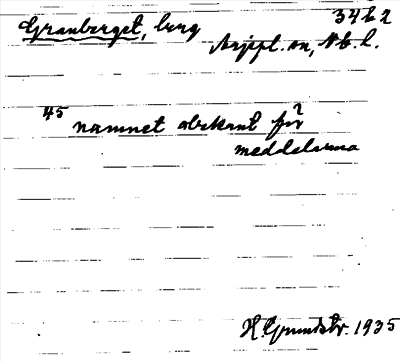 Granberget, berg 34b2
Arjepl. sn, Nb. l.
45 namnet obekant för ?
meddelarna
H. Grundstr. 1935